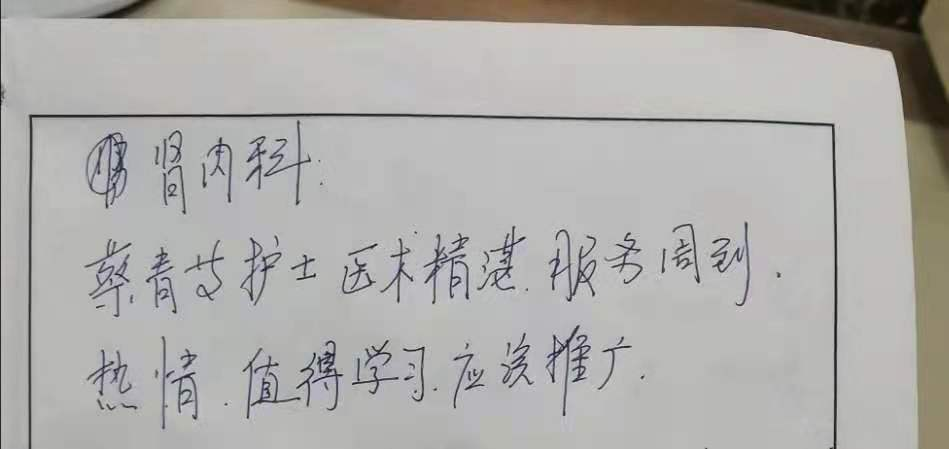 肾内科:
蔡青芳护士医术精湛.服务周到.
热情.值得学习.应该推广.